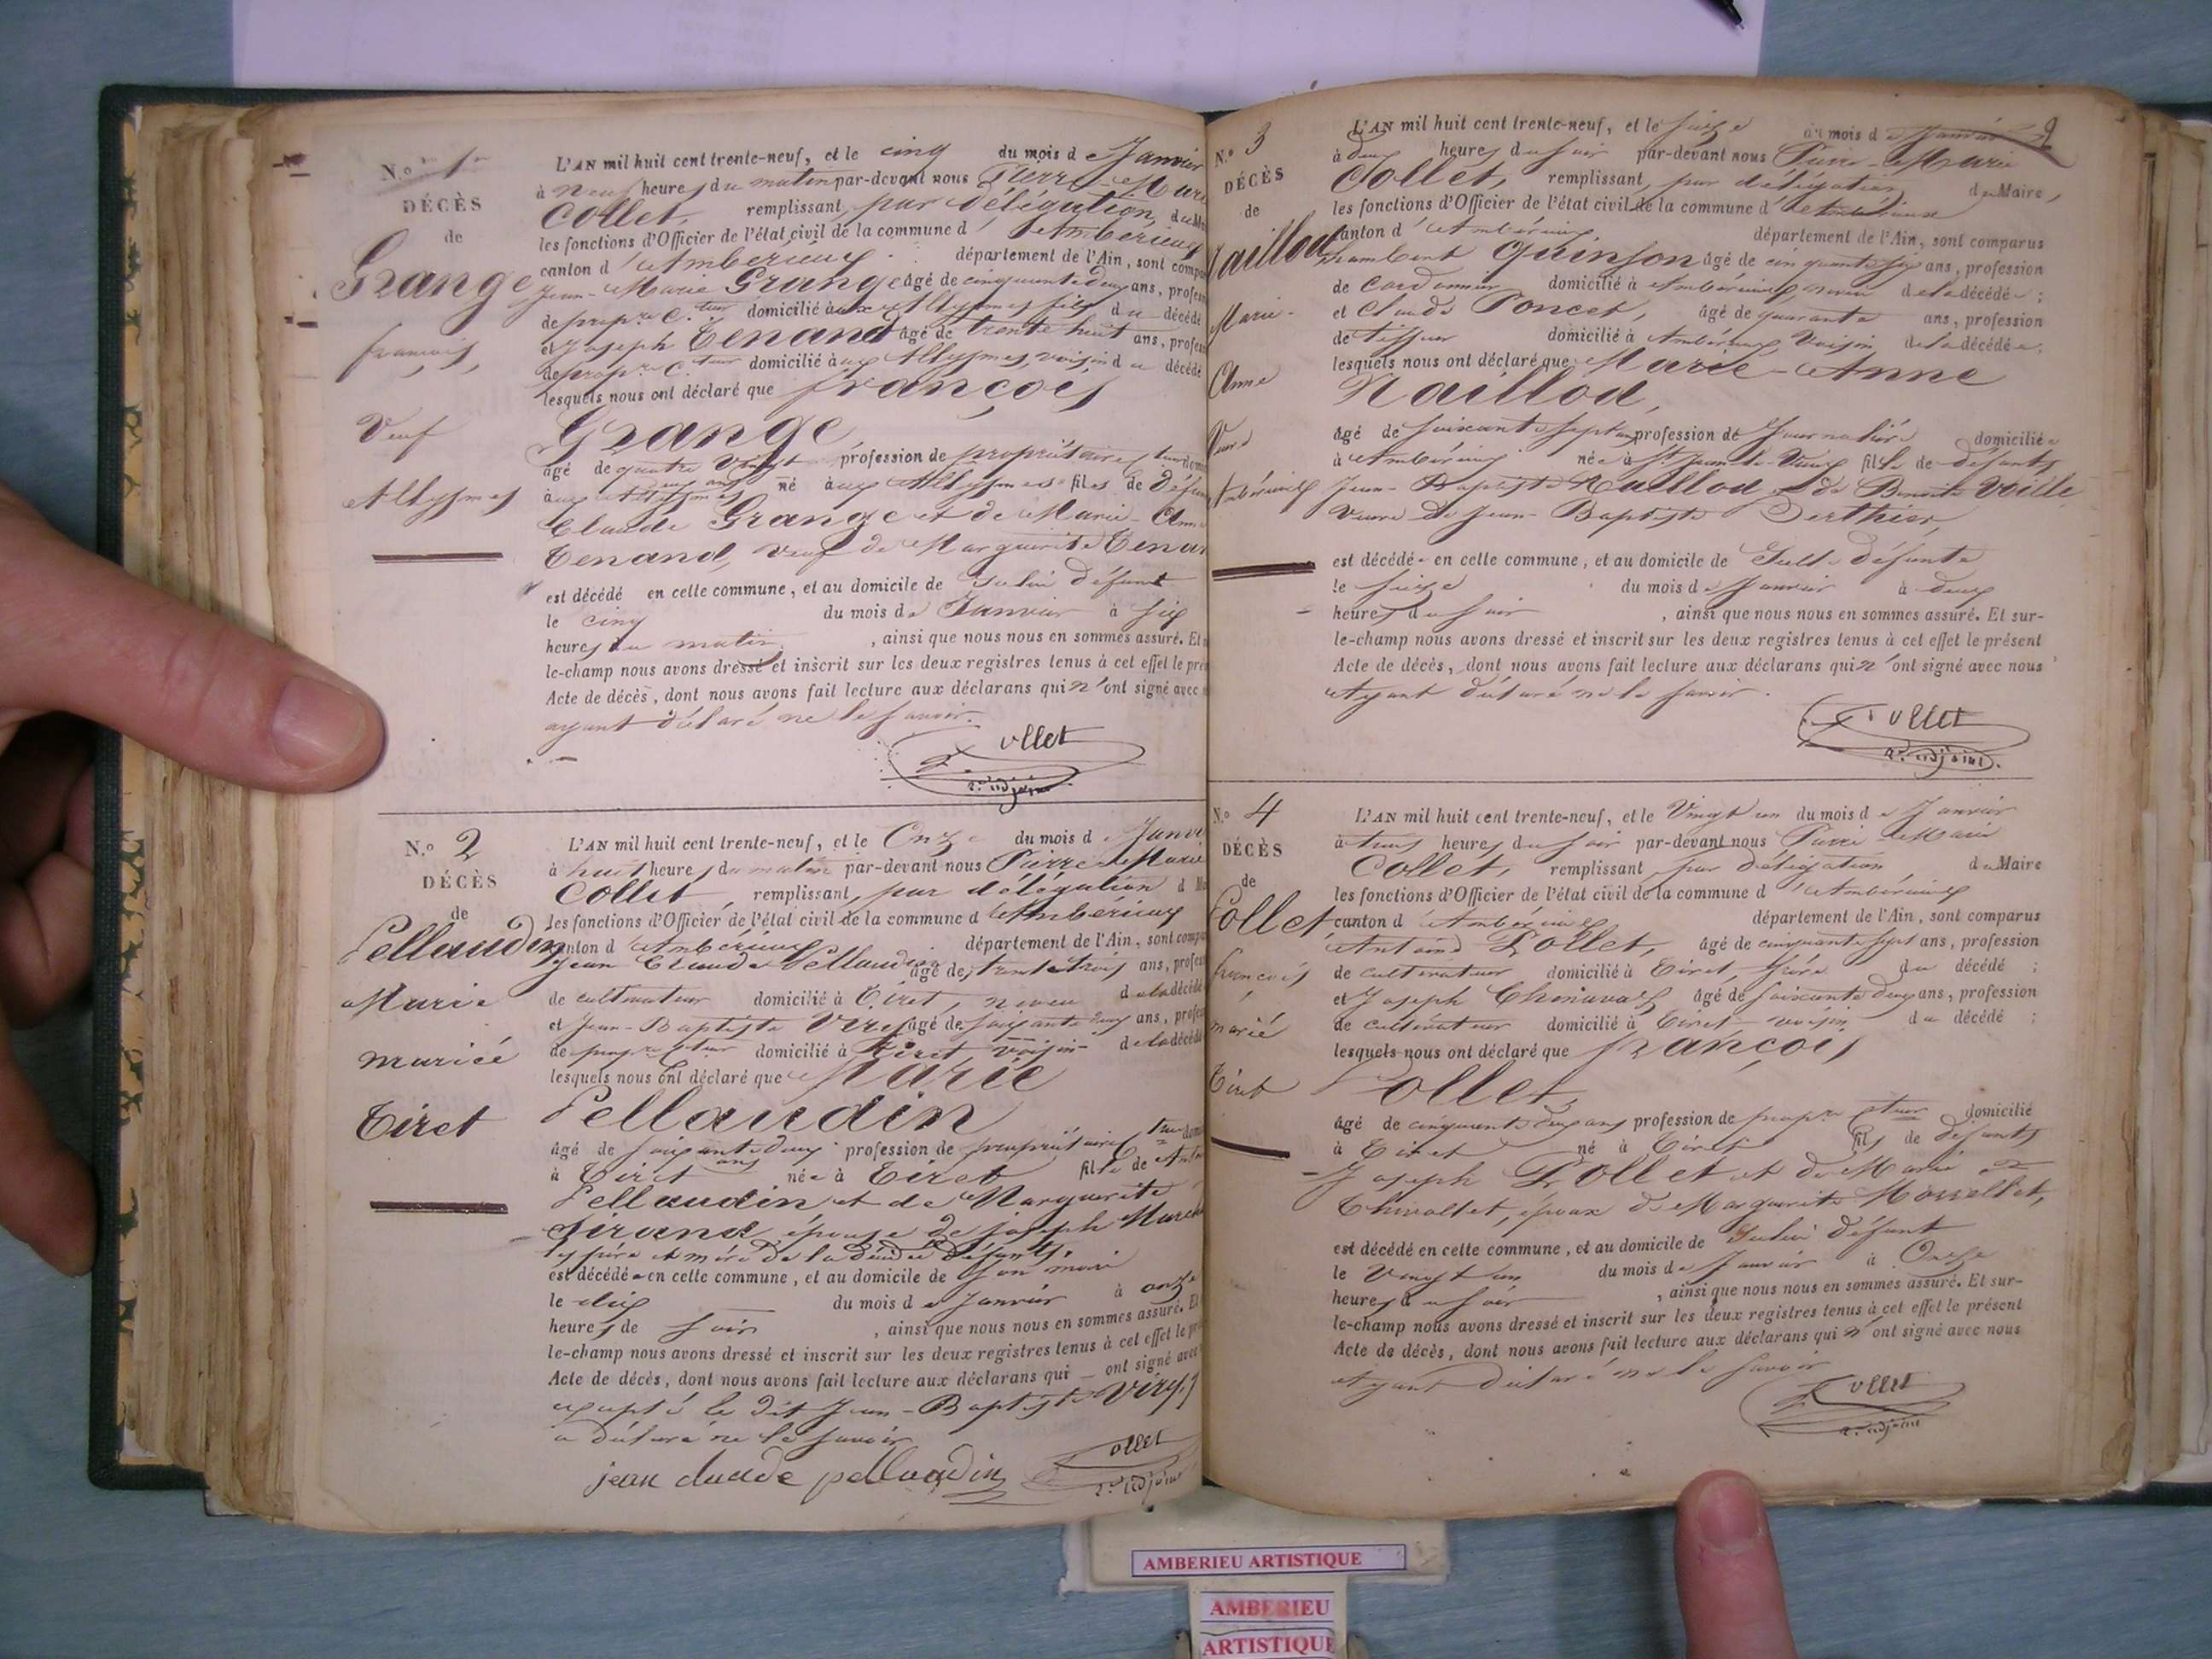 N.º 1er
DÉCÈS
de
Grange
françois,
Veuf
Allymes
L'AN mil huit cent trente-neuf, et le cinq du mois de Janvier
à neuf heures du matin par-devant nous Pierre-Mari
Collet, remplissant, par délégation, du
les fonctions d'Officier de l'état civil de la commune d'Ambérieux
canton d'Ambérieux département de l'Ain, sont compa
Jean-Marie Grange âgé de cinquante deux ans, profess
de propre C.teur domicilié aux Allymes fils du décédé
et Joseph Tenand âgé de trente huit ans, profess
de propre C.teur domicilié aux Allymes, voisin du décédé
lesquels nous ont déclaré que françois
Grange
âgé de quatre vingt deux ans profession de propriétaire c.teur
aux Allymes né aux Allymes fils de défun
Claude Grange et de Marie-Anne
Tenand, veuf de Marguerite Tenan
est décédé en cette commune, et au domicile de Celui défunt
le cinq du mois de Janvier à six
heures du matin, ainsi que nous nous en sommes assuré. Et s
le-champ nous avons dressé et inscrit sur les deux registres tenus à cet effet le pré
Acte de décès, dont nous avons fait lecture aux déclarans qui n'ont signé avec
ayant déclaré ne le savoir.
Collet
2.e adjoint
N.º 2
DÉCÈS
de
Pellaudin
Marie
mariée
Tiret
L'AN mil huit cent trente-neuf, et le Onze du mois de Janvi
à huit heures du matin par-devant nous Pierre-Marie
Collet, remplissant, par délégation d M
les fonctions d'Officier de l'état civil de la commune d'Ambérieux
canton d'Ambérieux département de l'Ain, sont compa
Jean Claude Pellaudin âgé de trente trois ans, profess
de cultivateur domicilié à Tiret, neveu de la décédé
et Jean-Baptiste Viry âgé de soixante deux ans, profess
de propre C.teur domicilié à Tiret, voisin de la décédé
lesquels nous ont déclaré que Marie
Pellaudin
âgé de soixante deux ans profession de propriétaire C.teur domi
à Tiret née à Tiret fille de Anto
Pellaudin et de Marguerite
Sirand, épouse de joseph March
les père et mère de la décédée défunts.
est décédée en cette commune, et au domicile de son mari
le dix du mois de Janvier à onze
heures de soir, ainsi que nous nous en sommes assuré. Et
le-champ nous avons dressé et inscrit sur les deux registres tenus à cet effet le pr
Acte de décès, dont nous avons fait lecture aux déclarans qui ont signé avec
excepté le dit Jean-Baptiste Viry
a déclaré ne le savoir
jean claude pellaudin
Collet
2.e adjoint
N.º 3
DÉCÈS
de
Naillod
Marie-
Anne
Veuve
Ambérieux
2
L'AN mil huit cent trente-neuf, et le seize du mois de Janvier
à deux heures du soir par-devant nous Pierre-Marie
Collet, remplissant, par délégation du Maire,
les fonctions d'Officier de l'état civil de la commune d'Ambérieux
canton d'Ambérieux, département de l'Ain, sont comparus
Lambert Quinson âgé de cinquante six ans, profession
de Cordonnier domicilié à Ambérieux, neveu de la décédée;
et Claude Poncet, âgé de quarante ans, profession
de tisseur domicilié à Ambérieux Voisin de la décédée,
lesquels nous ont déclaré que Marie-Anne
Naillod,
âgé de soixante sept ans profession de Journalière domiciliée
à Ambérieux née à St. Jean-le-Vieux fille de défunts
Jean-Baptiste Naillod et de Benoite Voille,
Veuve de Jean-Baptiste Berthier,
est décédée en cette commune, et au domicile de Celle défunte
le seize du mois de Janvier à deux
heures du soir, ainsi que nous nous en sommes assuré. Et sur-
le-champ nous avons dressé et inscrit sur les deux registres tenus à cet effet le présent
Acte de décès, dont nous avons fait lecture aux déclarans qui n'ont signé avec nous
ayant déclaré ne le savoir.
Collet
2.e adjoint.
N.º 4
DÉCÈS
de
Collet
françois
marié
Tiret
L'AN mil huit cent trente-neuf, et le Vingt un du mois de Janvier
à trois heures du soir par-devant nous Pierre-Marie
Collet, remplissant, par délégation du Maire
les fonctions d'Officier de l'état civil de la commune d'Ambérieux
canton d'Ambérieux département de l'Ain, sont comparus
Antoine Collet, âgé de cinquante sept ans, profession
de cultivateur domicilié à Tiret, frère du décédé;
et Joseph Chenavaz âgé de soixante deux ans, profession
de cultivateur domicilié à Tiret voisin du décédé;
lesquels nous ont déclaré que françois
Collet,
âgé de cinquante deux ans profession de propre C.teur domicilié
à Tiret né à Tiret fils de défunts
Joseph Collet et de Marie
Chivollet, époux de Marguerite Morrellet,
est décédé en cette commune, et au domicile de Celui défunt
le Vingt un du mois de Janvier à Onze
heures du soir, ainsi que nous nous en sommes assuré. Et sur-
le-champ nous avons dressé et inscrit sur les deux registres tenus à cet effet le présent
Acte de décès, dont nous avons fait lecture aux déclarans qui n'ont signé avec nous
ayant déclaré ne le savoir
Collet
2.e adjoint
AMBERIEU ARTISTIQUE
AMBERIEU
ARTISTIQUE